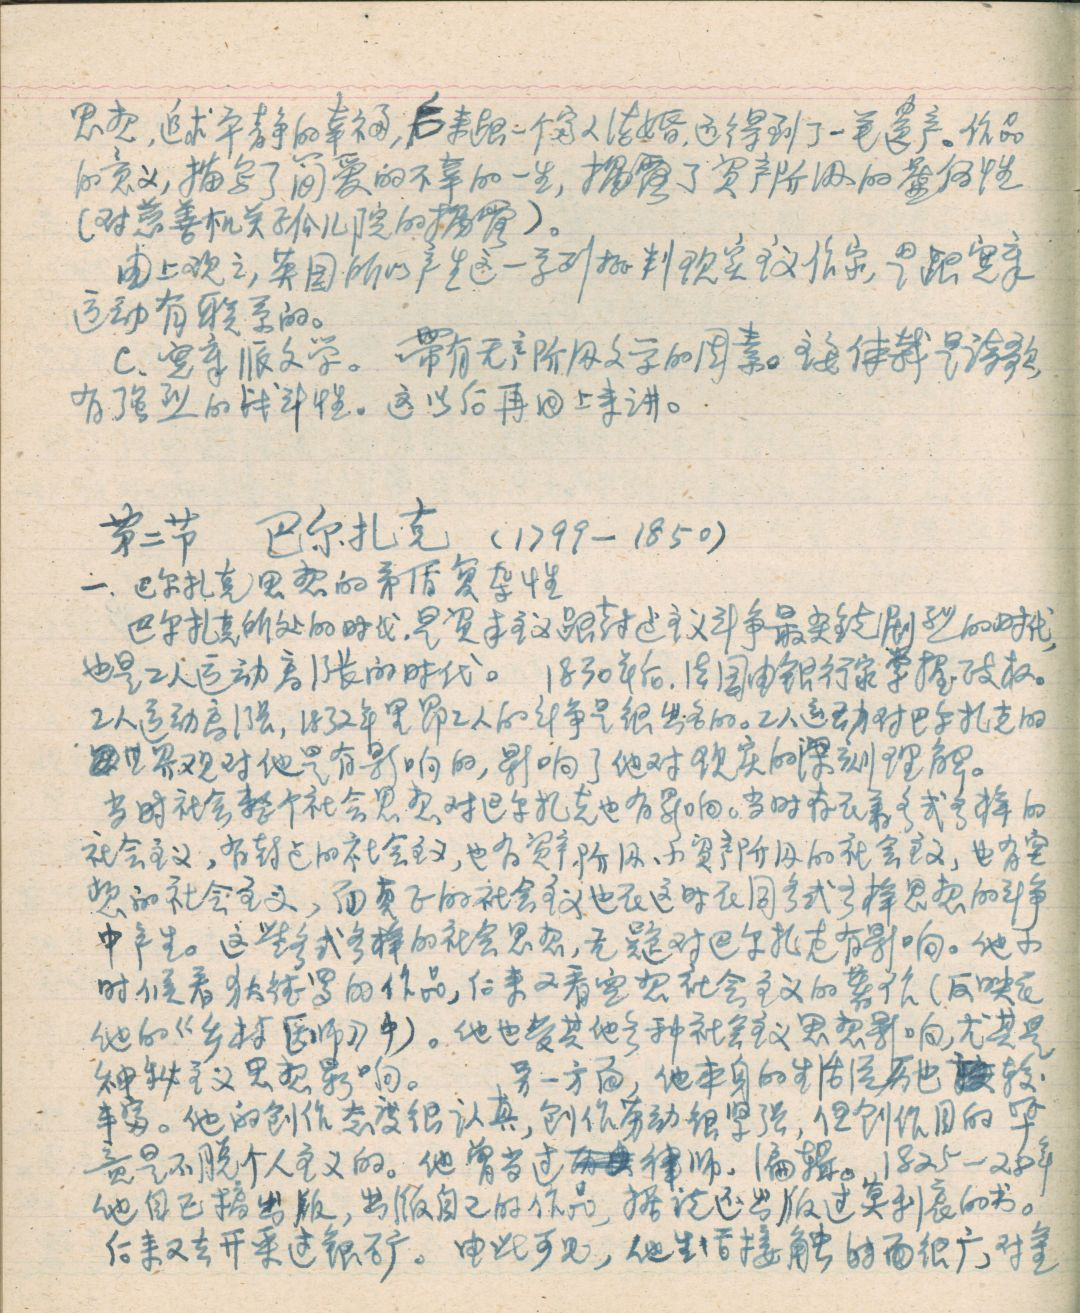 思想，追求平静的幸福，后来跟一个富人结婚，还得到了一笔遗产。作品
的意义，描写了简爱的不幸的一生，揭露了资产阶级的虚伪性
（对慈善机关孤儿院的揭露）。
由上观之，英国所以产生这一系列批判现实主义作家，是跟宪章
运动有联系的。
C、宪章派文学。 带有无产阶级文学的因素。主要体裁是诗歌，
有强烈的战斗性。这以后再回上来讲。
第二节 巴尔扎克（1799—1850）
一、巴尔扎克思想的矛盾复杂性
巴尔扎克所处的时代，是资本主义跟封建主义斗争最尖锐剧烈的时代，
也是工人运动高涨的时代。 1830年后，法国由银行家掌握政权。
工人运动高涨，1832年里昂工人的斗争是很出名的。工人运动对巴尔扎克的
世界观对他是有影响的，影响了他对现实的深刻理解。
当时社会整个社会思想对巴尔扎克也有影响。当时存在着各式各样的
社会主义，有封建的社会主义，也有资产阶级、小资产阶级的社会主义，也有空
想的社会主义，而真正的社会主义也在这时在同各式各样思想的斗争
中产生。这些各式各样的社会思想，无疑对巴尔扎克有影响。他小
时候看狄德罗的作品，后来又看空想社会主义的著作（反映在
他的《乡村医师》中）。他也受其他各种社会主义思想影响，尤其是
神秘主义思想影响。 另一方面，他本身的生活经历也较
丰富。他的创作态度很认真，创作劳动很坚强，但创作目的毕
竟是不脱个人主义的。他曾当过律师、编辑。1825—28年
他自己搞出版，出版自己的作品，据说还出版过莫利哀的书。
后来又去开采过银矿。由此可见，他生活接触的面很广，对金